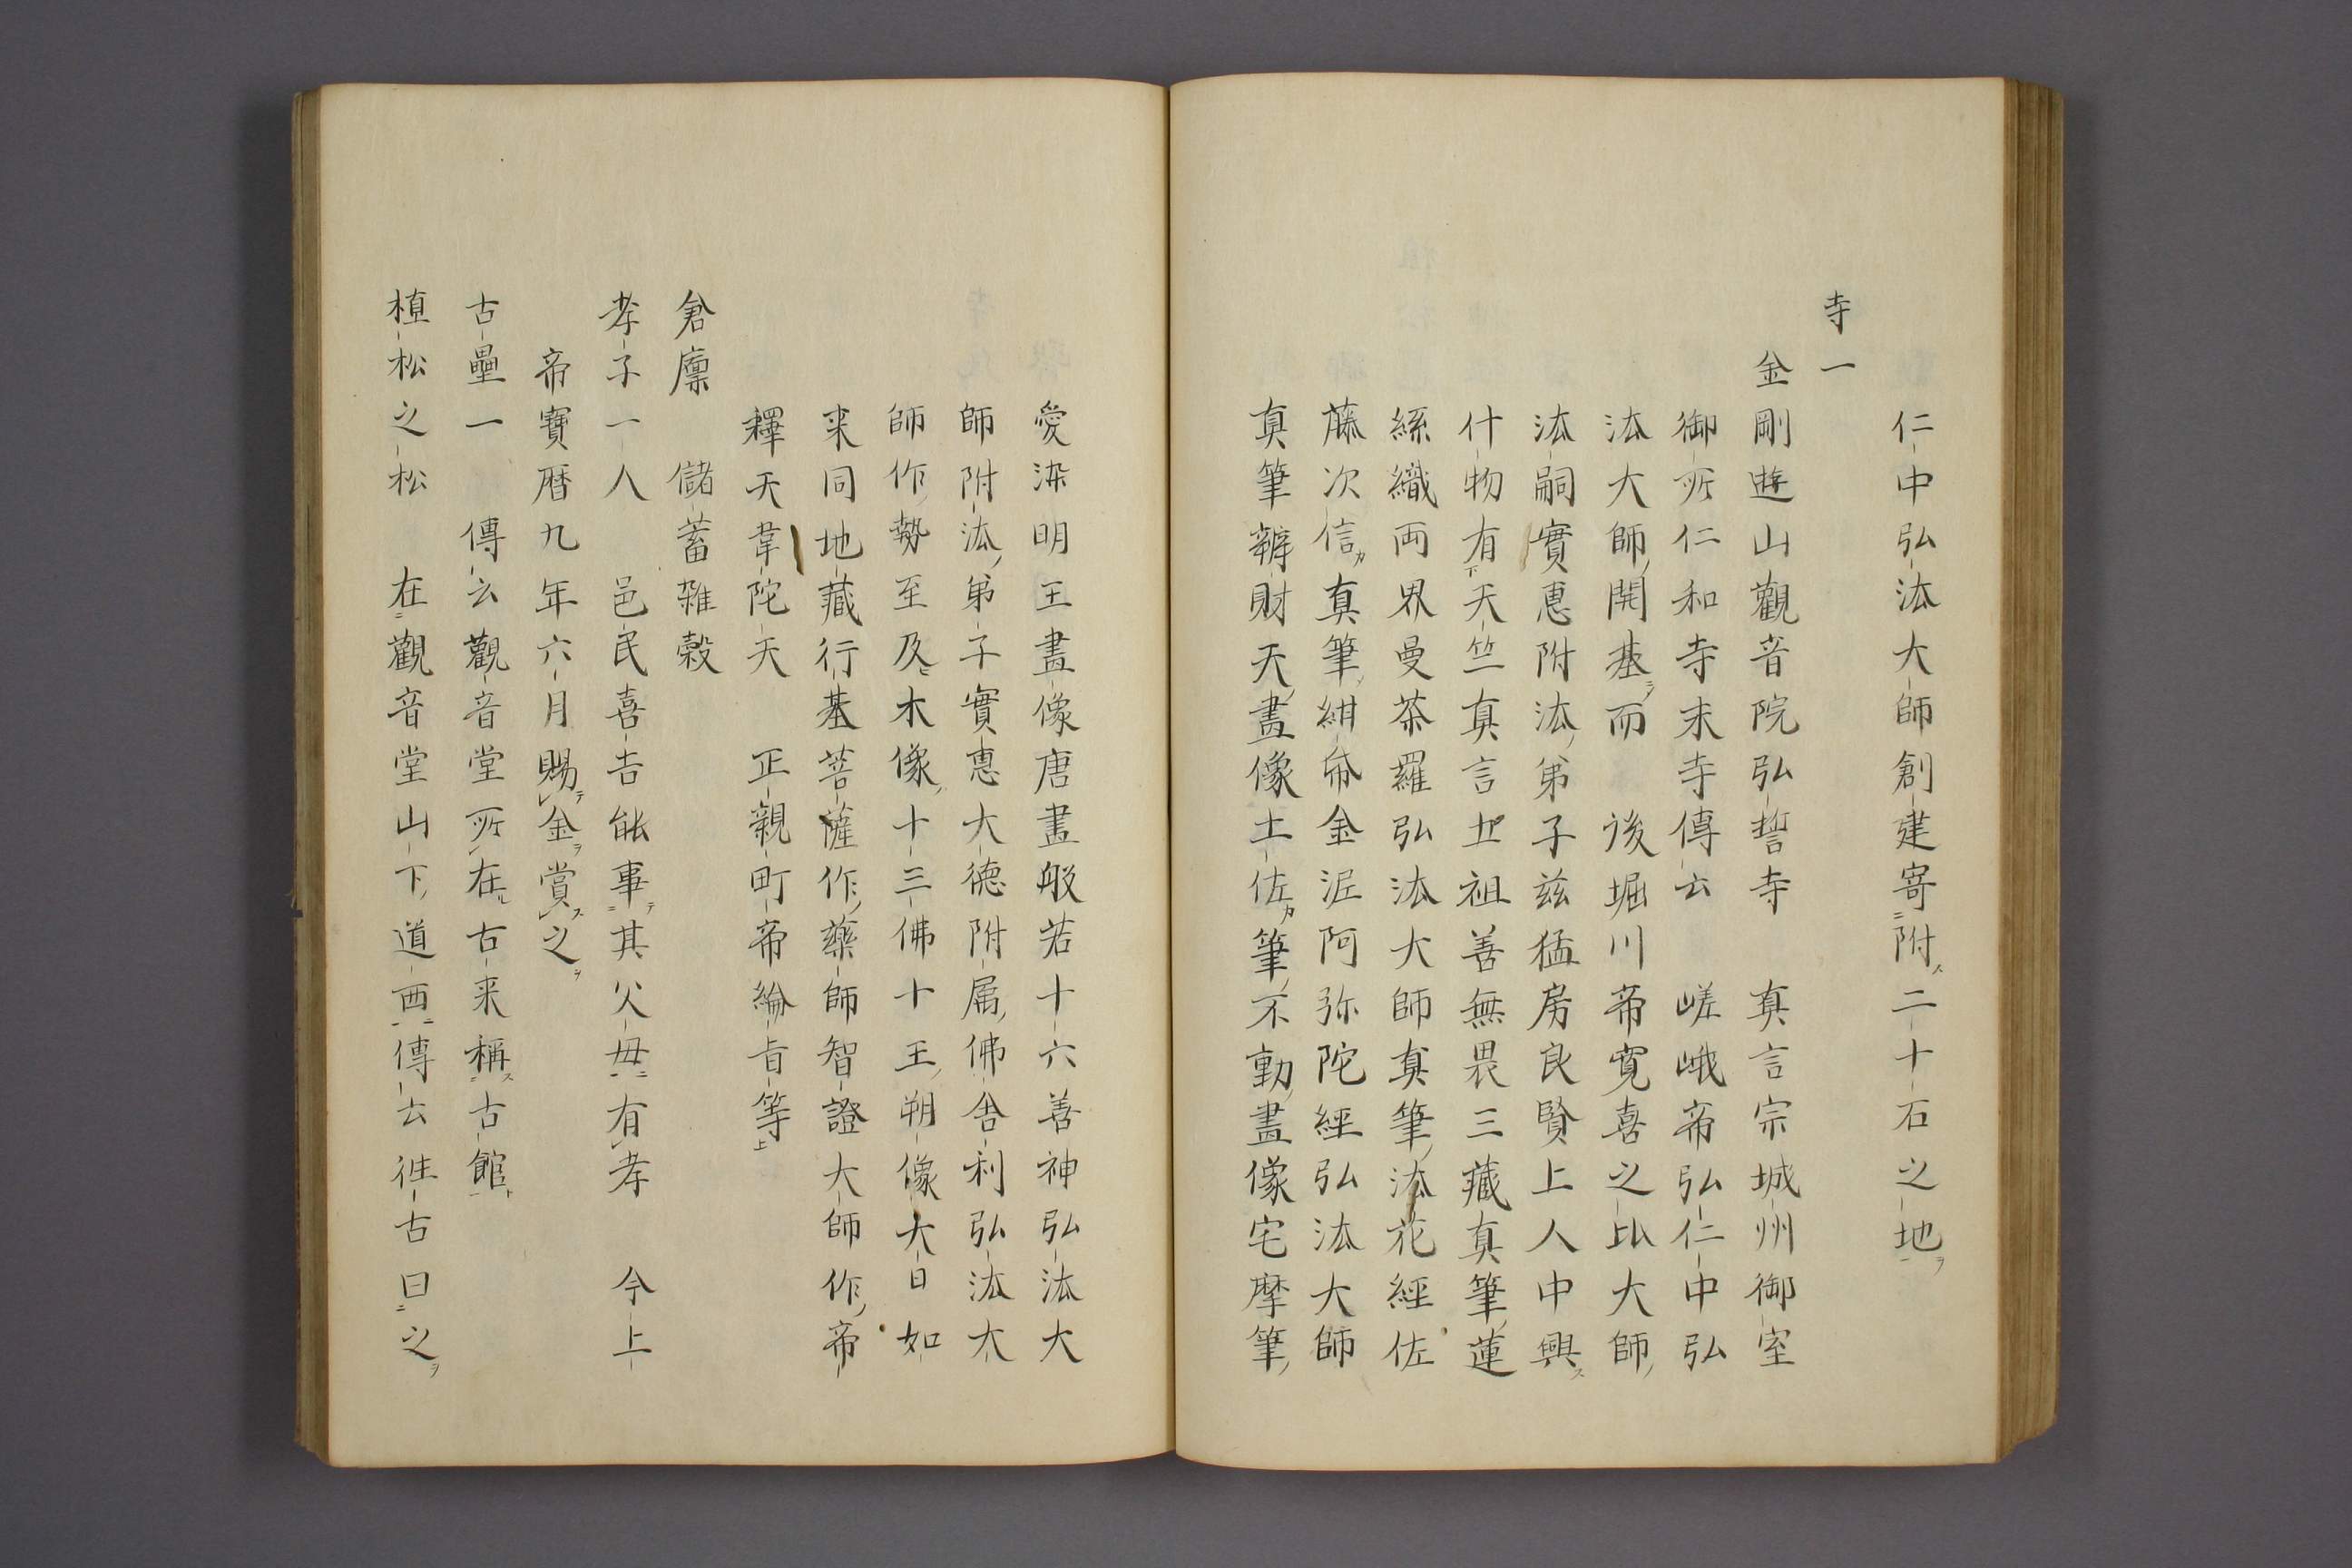 仁中弘法大師創建寄附二十石之地
寺一
金剛遊山觀音院弘誓寺　真言宗城州御室
御所仁和寺末寺傳云　嵯峨帝弘仁中弘
法大師開基而　後堀川帝寛喜之比大師
法嗣實惠附法弟子兹猛房良賢上人中興
什物有天竺真言祖善無畏三藏真筆蓮
絲織両界曼荼羅弘法大師真筆法花經佐
藤次信真筆紺帋金泥阿弥陀經弘法大師
真筆辨財天畫像土佐筆不動畫像宅摩筆
愛染明王畫像唐畫般若十六善神弘法大
師附法弟子實惠大徳附属佛舎利弘法大
師作勢至及木像十三佛十王朔像大日如
来同地藏行基菩薩作藥師智證大師作帝
釋天韋陀天　正親町帝綸旨等
倉廩　儲蓄雜穀
孝子一人　邑民喜吉能事其父母有孝　今上
帝寶暦九年六月賜金賞之
古壘一　傳云觀音堂所在古来稱古館
植松之松　在觀音堂山下道西傳云徃古曰之